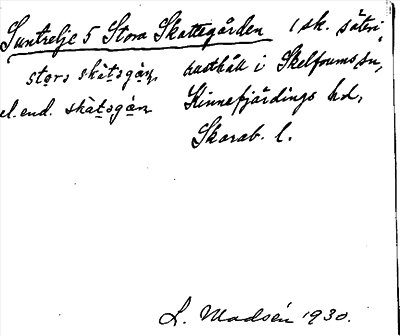 Suntrelje 5 Stora Skattegården 1 sk. säteri
stors skàtsgàṇ, hustbåll i Skelfvums sn,
el. end. skàtsgàn Kinnefjärdings hd,
Skarab. l.
L. Madsén 1930.